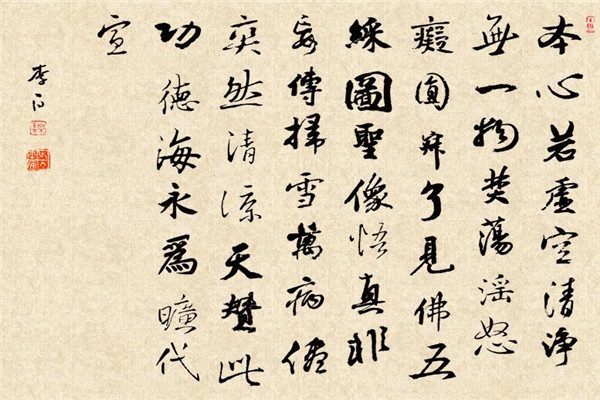 本心若虛空清淨
無一物焚蕩淫怒
癡圓寂了見佛五
綵圖聖像悟真非
妄傳掃雪萬病儘
爽然清涼天贊此
功德海永爲曠代
宣
李白